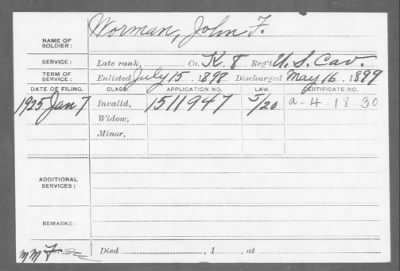 NAME OF SOLDIER: Worman, John F.
SERVICE: Late rank, Co. K. 8 Reg't U. S. Cav.
TERM OF SERVICE: Enlisted July 15. 1898 Discharged May 16. 1899
DATE OF FILING. CLASS. APPLICATION NO. LAW. CERTIFICATE NO.
1925 Jan 7 Invalid, 1511947 5/20 a-4-18 30
Widow,
Minor,
ADDITIONAL SERVICES:
REMARKS:
Died , 1 , at